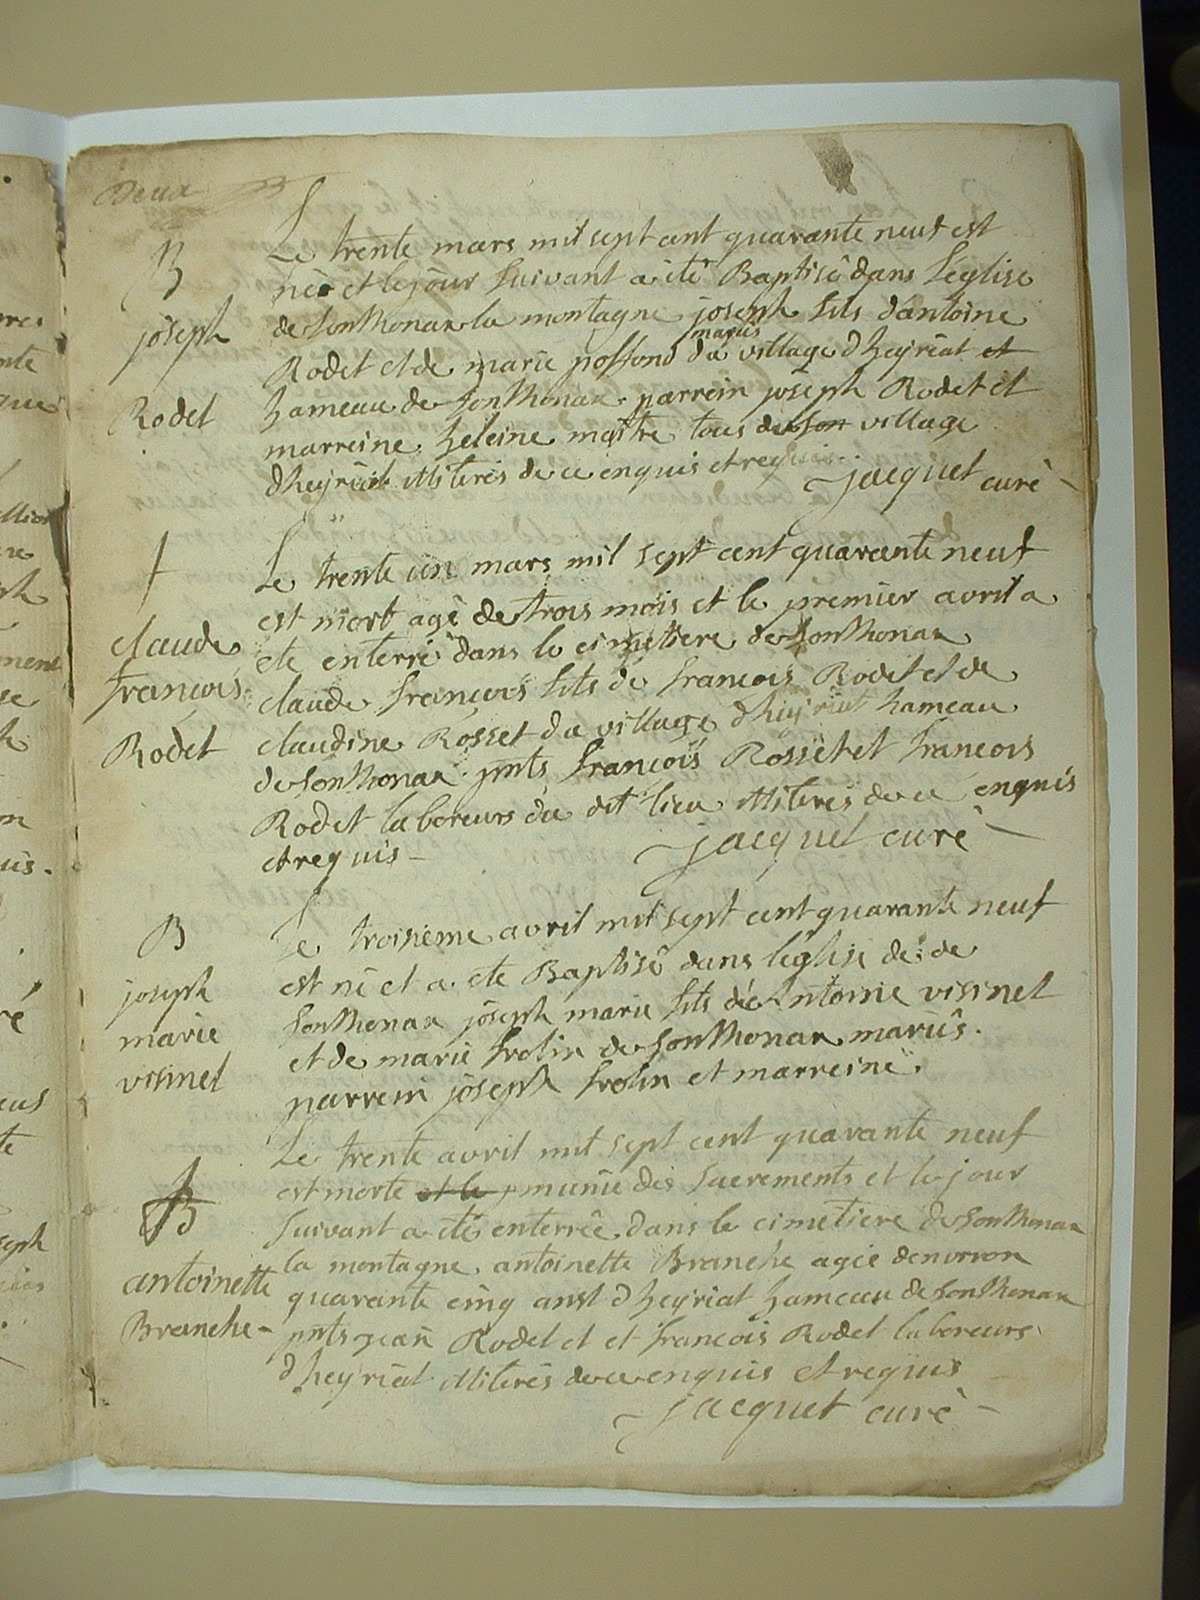 Deux
B
joseph
Rodet
Le trente mars mil sept cent quarante neuf est
né et le jour suivant a été Baptisé dans l'église
de sonthonax la montagne joseph fils d'antoine
mariés
Rodet et de marie poffond du village d'heyriat et
hameau de sonthonax parrein joseph Rodet et
marreine heleine maitre tous du son village
d'heyriat illiterés de ce enquis et requis
jacquet curé
†
claude
francois
Rodet
Le trente un mars mil sept cent quarante neuf
est mort agé de trois mois et le premier avril a
ete enterré dans le cimetiere de sonthonax
claude francois fils de francois Rodet et de
claudine Rosset du village d'heyriat hameau
de sonthonax pnts francois Rosset et francois
Rodet laboreurs du dit lieu illiterés de ce enquis
et requis
jacquet curé
B
joseph
marie
visinet
Le troisieme avril mil sept cent quarante neuf
est né et a ete Baptisé dans l'église de de
sonthonax joseph marie fils de Antoine visinet
et de marie frolin de sonthonax mariés.
parrein joseph frolin et marreine.
†
B
antoinette
Branche
Le trente avril mil sept cent quarante neuf
est morte et le munie des sacrements et le jour
suivant a été enterrée dans le cimetiere de sonthonax
la montagne antoinette Branche agée denviron
quarante cinq anst d'heyriat hameau de sonthonax
pnts jean Rodet et et francois Rodet laboreurs
d'heyriat illiterés de ce enquis et requis
jacquet curé